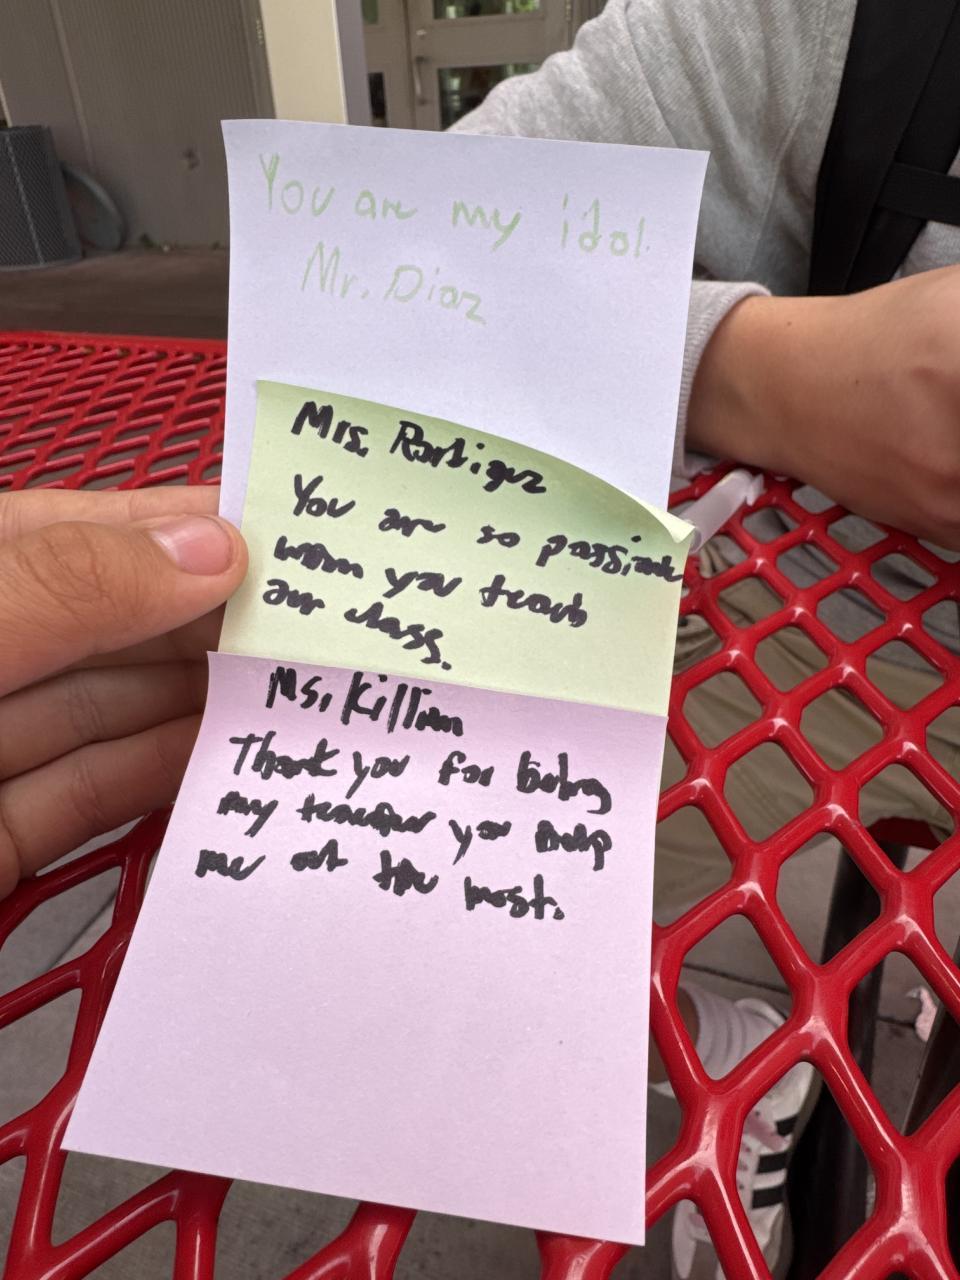 You are my idol.
Mr. Diaz
Mrs. Rortigez
You are so passionate
when you teach
our class.
Ms. Killian
Thank you for being
my teacher you help
me out the most.